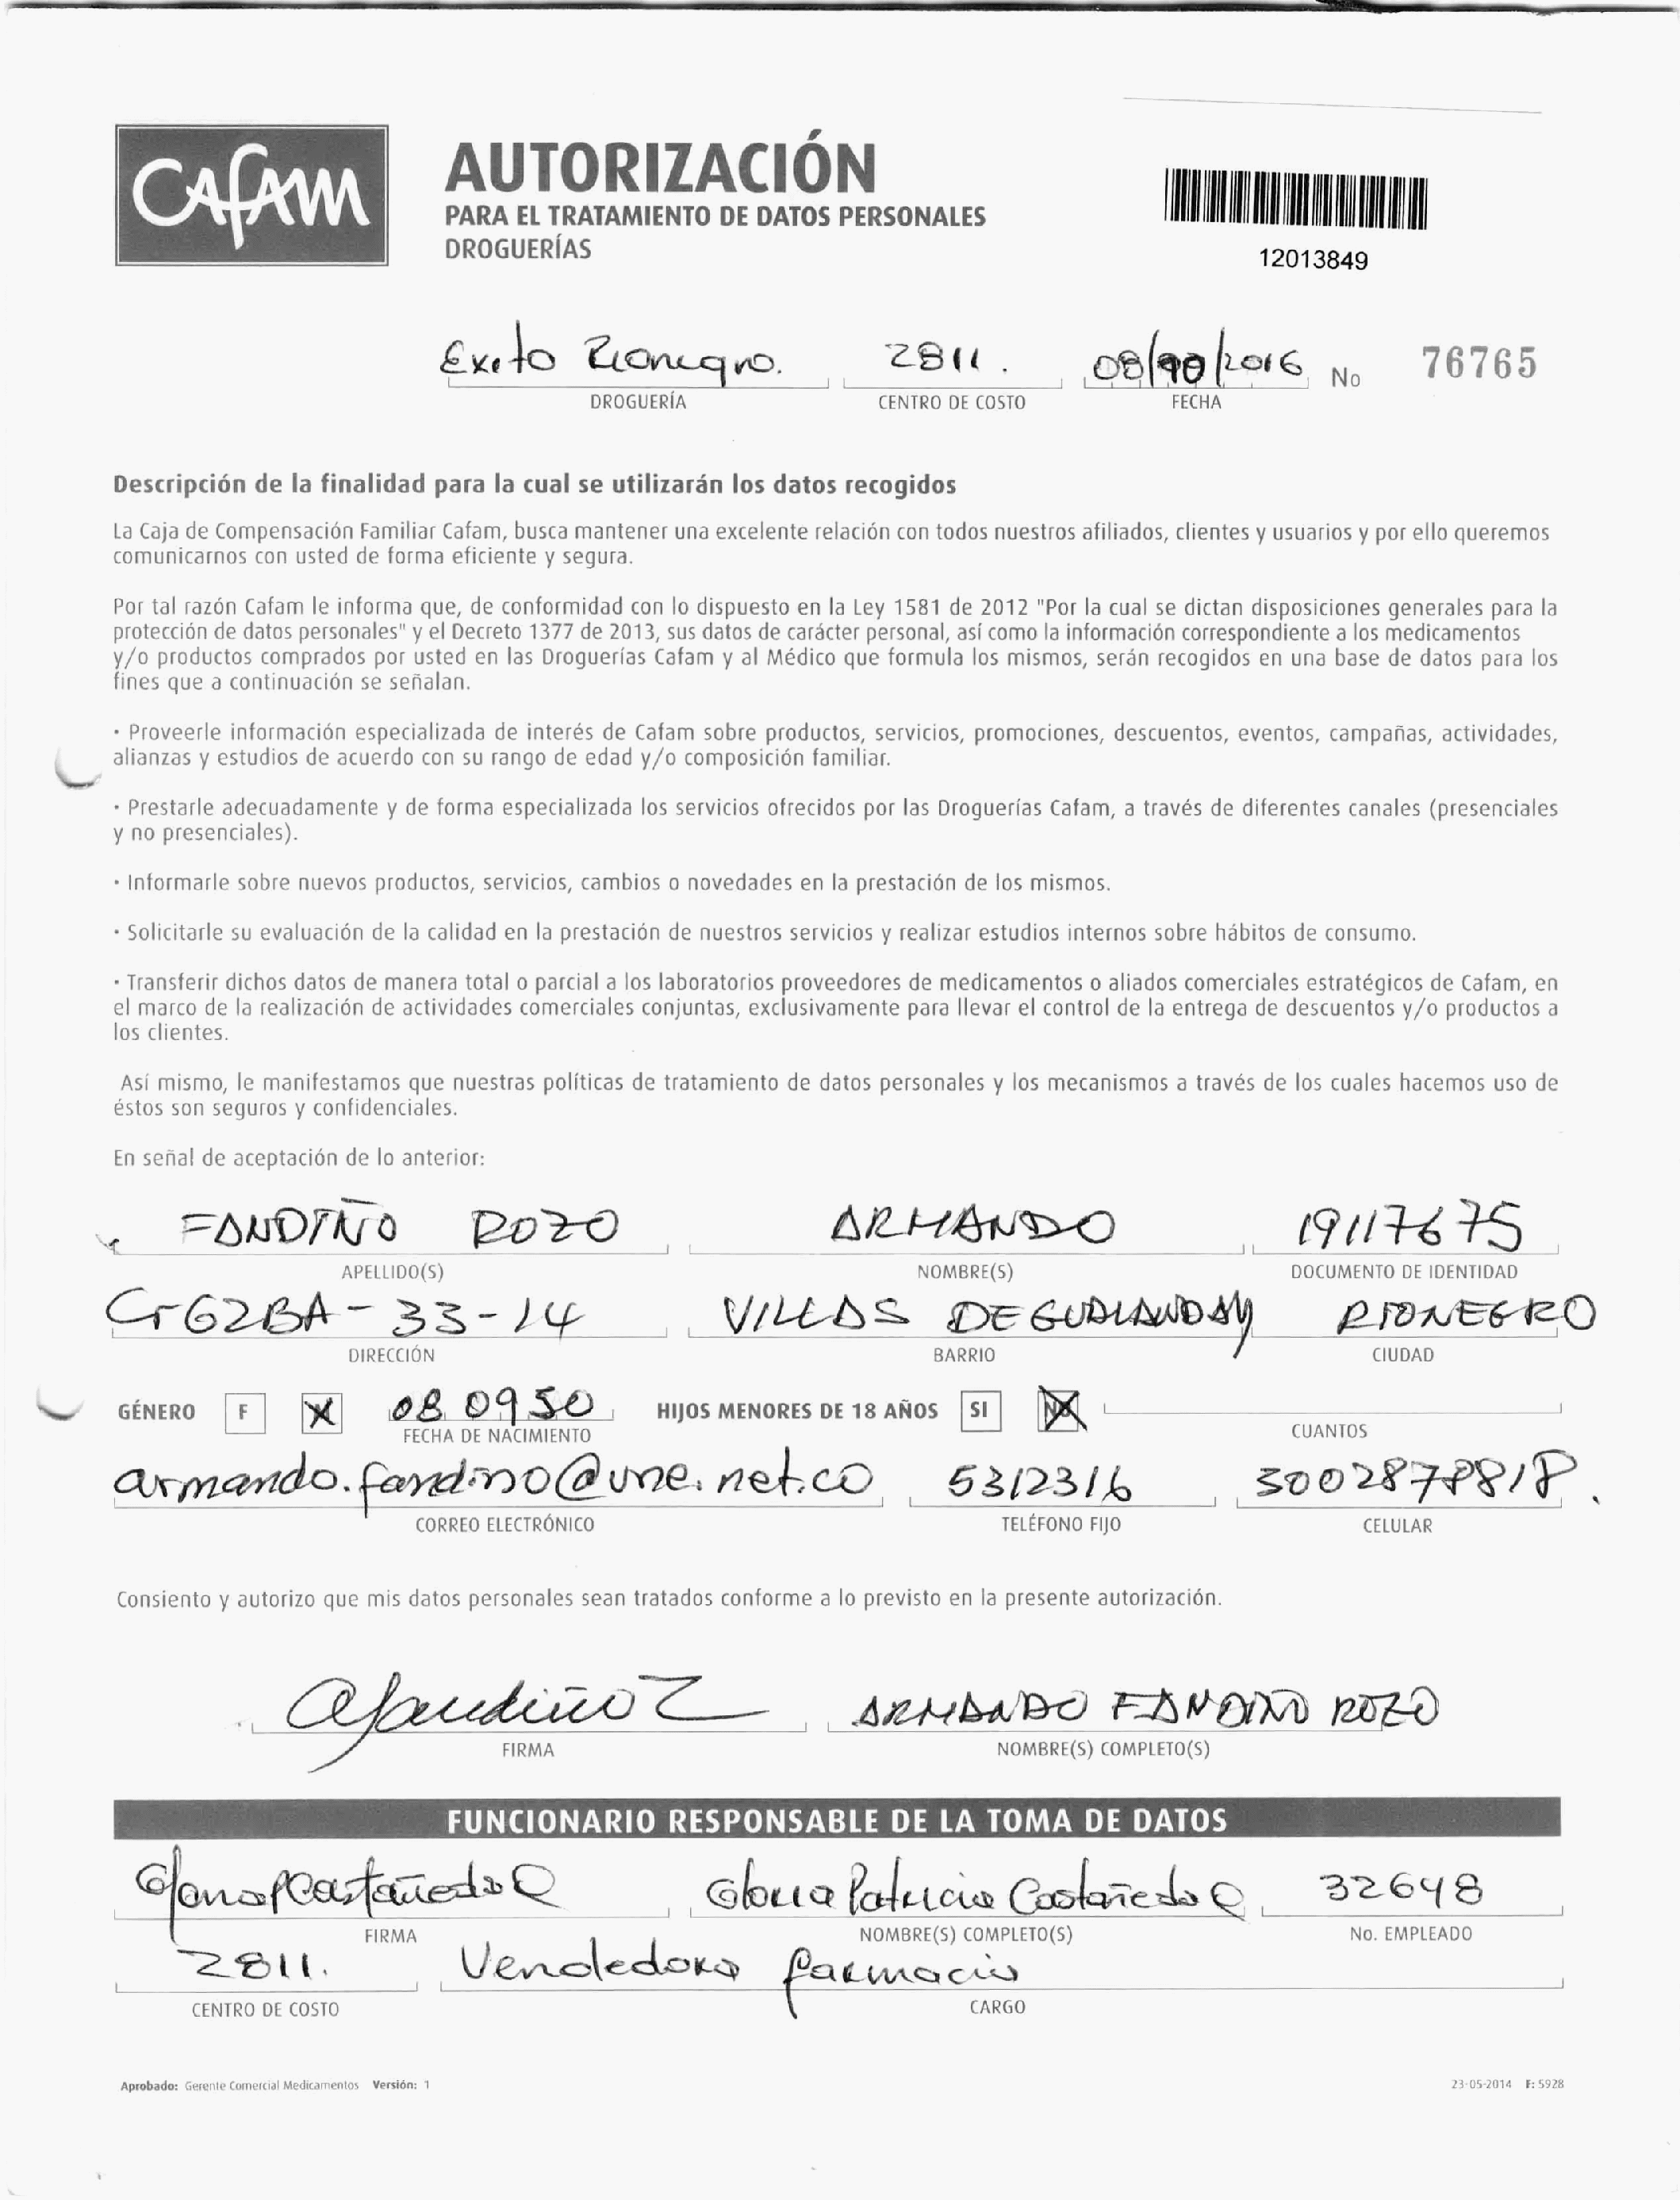 CAFAM
AUTORIZACIÓN
PARA EL TRATAMIENTO DE DATOS PERSONALES
DROGUERÍAS
12013849
Exito Rionegro. 2811. 2016 No 76765
DROGUERÍA CENTRO DE COSTO FECHA
Descripción de la finalidad para la cual se utilizarán los datos recogidos
La Caja de Compensación Familiar Cafam, busca mantener una excelente relación con todos nuestros afiliados, clientes y usuarios y por ello queremos
comunicarnos con usted de forma eficiente y segura.
Por tal razón Cafam le informa que, de conformidad con lo dispuesto en la Ley 1581 de 2012 "Por la cual se dictan disposiciones generales para la
protección de datos personales" y el Decreto 1377 de 2013, sus datos de carácter personal, así como la información correspondiente a los medicamentos
y/o productos comprados por usted en las Droguerías Cafam y al Médico que formula los mismos, serán recogidos en una base de datos para los
fines que a continuación se señalan.
· Proveerle información especializada de interés de Cafam sobre productos, servicios, promociones, descuentos, eventos, campañas, actividades,
alianzas y estudios de acuerdo con su rango de edad y/o composición familiar.
· Prestarle adecuadamente y de forma especializada los servicios ofrecidos por las Droguerías Cafam, a través de diferentes canales (presenciales
y no presenciales).
· Informarle sobre nuevos productos, servicios, cambios o novedades en la prestación de los mismos.
· Solicitarle su evaluación de la calidad en la prestación de nuestros servicios y realizar estudios internos sobre hábitos de consumo.
· Transferir dichos datos de manera total o parcial a los laboratorios proveedores de medicamentos o aliados comerciales estratégicos de Cafam, en
el marco de la realización de actividades comerciales conjuntas, exclusivamente para llevar el control de la entrega de descuentos y/o productos a
los clientes.
Así mismo, le manifestamos que nuestras políticas de tratamiento de datos personales y los mecanismos a través de los cuales hacemos uso de
éstos son seguros y confidenciales.
En señal de aceptación de lo anterior:
FANDIÑO ROZO ARMANDO 19117675
APELLIDO(S) NOMBRE(S) DOCUMENTO DE IDENTIDAD
Cr62BA-33-14 VILLAS DE GUALANDAY RIONEGRO
DIRECCIÓN BARRIO CIUDAD
GÉNERO F X 08 09 50 HIJOS MENORES DE 18 AÑOS SI NO X
FECHA DE NACIMIENTO CUANTOS
armando.fandino@une.net.co 5312316 3002878818.
CORREO ELECTRÓNICO TELÉFONO FIJO CELULAR
Consiento y autorizo que mis datos personales sean tratados conforme a lo previsto en la presente autorización.
afandiño ARMANDO FANDIÑO ROZO
FIRMA NOMBRE(S) COMPLETO(S)
FUNCIONARIO RESPONSABLE DE LA TOMA DE DATOS
Gloria P Castañeda Q Gloria Patricia Castañeda Q 32648
FIRMA NOMBRE(S) COMPLETO(S) No. EMPLEADO
2811. Vendedora farmacia
CENTRO DE COSTO CARGO
Aprobado: Gerente Comercial Medicamentos Versión: 1 23-05-2014 F: 5928